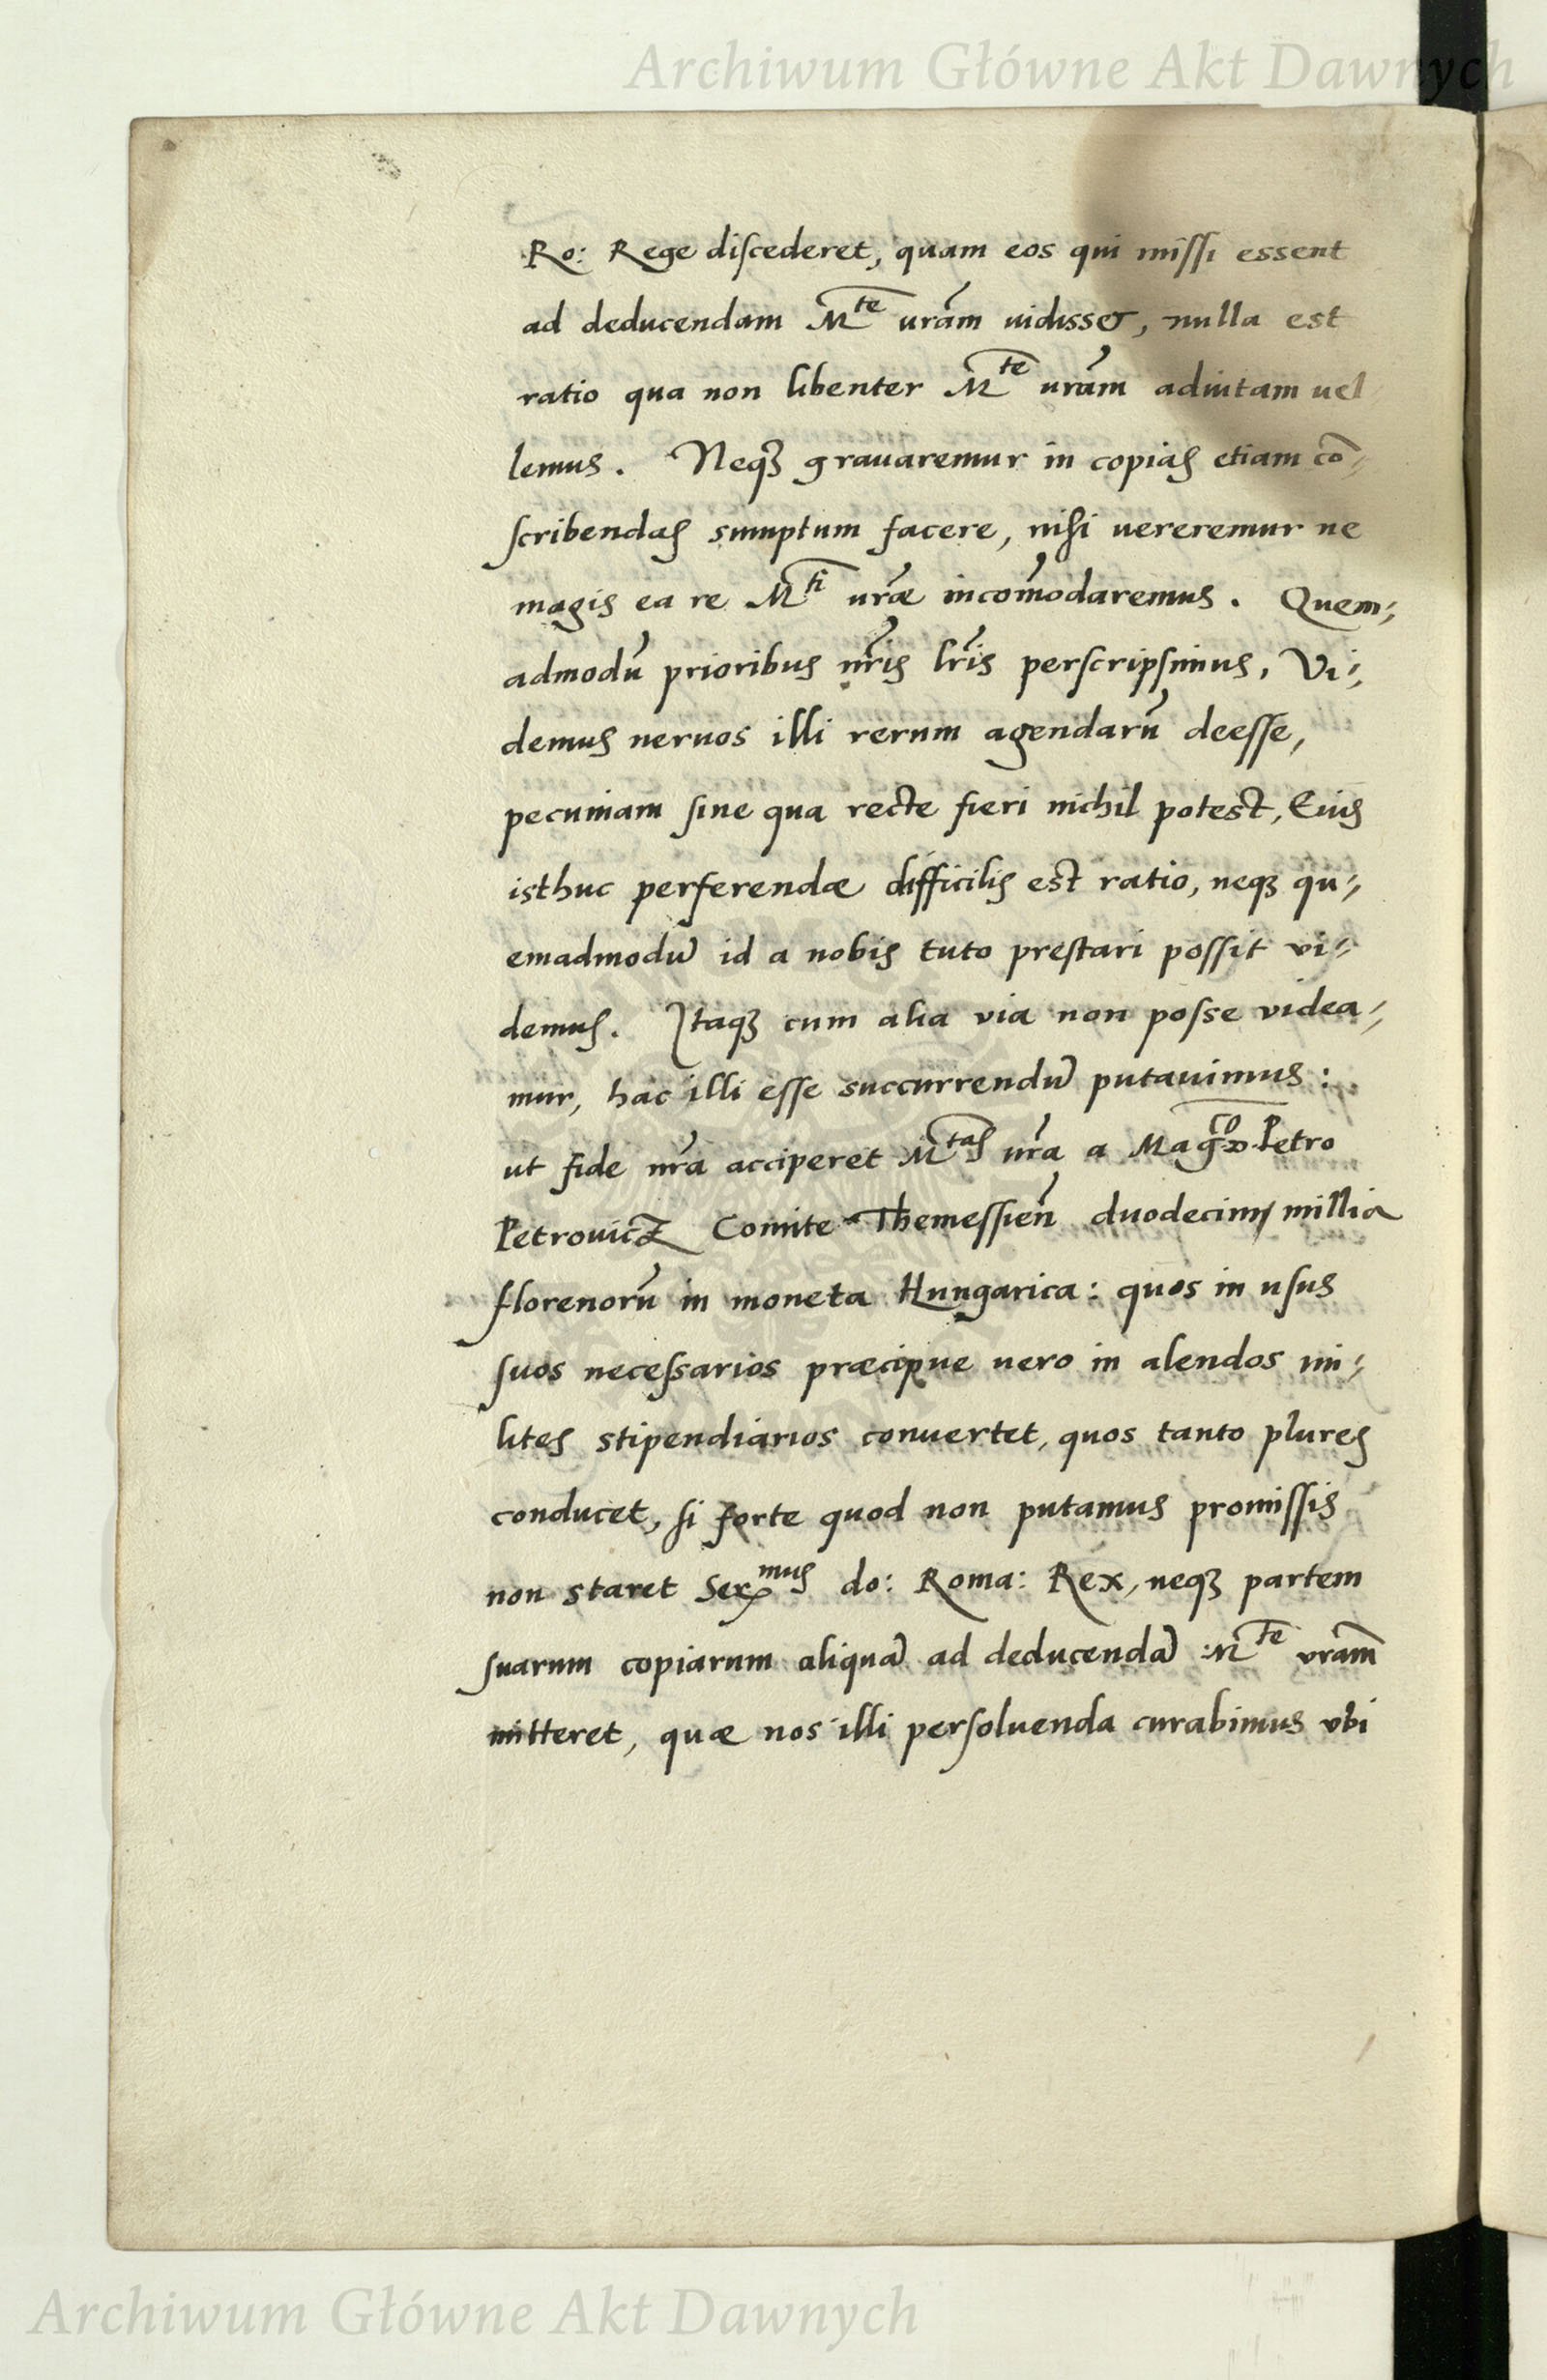 Archiwum Główne Akt Dawnych
Ro: Rege discederet, quam eos qui missi essent
ad deducendam M^te vrãm uidisset, nulla est
ratio qua non libenter M^te vrãm adiutam uel
lemus. Neqꝫ grauaremur in copias etiam cõ-
scribendas sumptum facere, nisi uereremur ne
magis ea re M^ti vrãe incõmodaremus. Quem-
admodũ prioribus nr̃is lr̃is perscripsimus, Vi-
demus neruos illi rerum agendarũ deesse,
pecuniam sine qua recte fieri nichil potest, Eius
isthuc perferendæ difficilis est ratio, neqꝫ qu-
emadmodũ id a nobis tuto prestari possit vi-
demus. Itaqꝫ cum alia via non posse videa-
mur, hac illi esse succurrendũ putauimus:
ut fide nr̃a acciperet M^tas vr̃a a Mag^co Petro
Petrovicz Comite Themessieñ duodecim millia
florenorũ in moneta Hungarica: quos in usus
suos necessarios præcipue uero in alendos mi-
lites stipendiarios conuertet, quos tanto plures
conducet, si forte quod non putamus promissis
non staret Ser^mus do: Roma: Rex, neqꝫ partem
suarum copiarum aliquã ad deducendã M^te vrãm
mitteret, quæ nos illi persoluenda curabimus vbi
Archiwum Główne Akt Dawnych